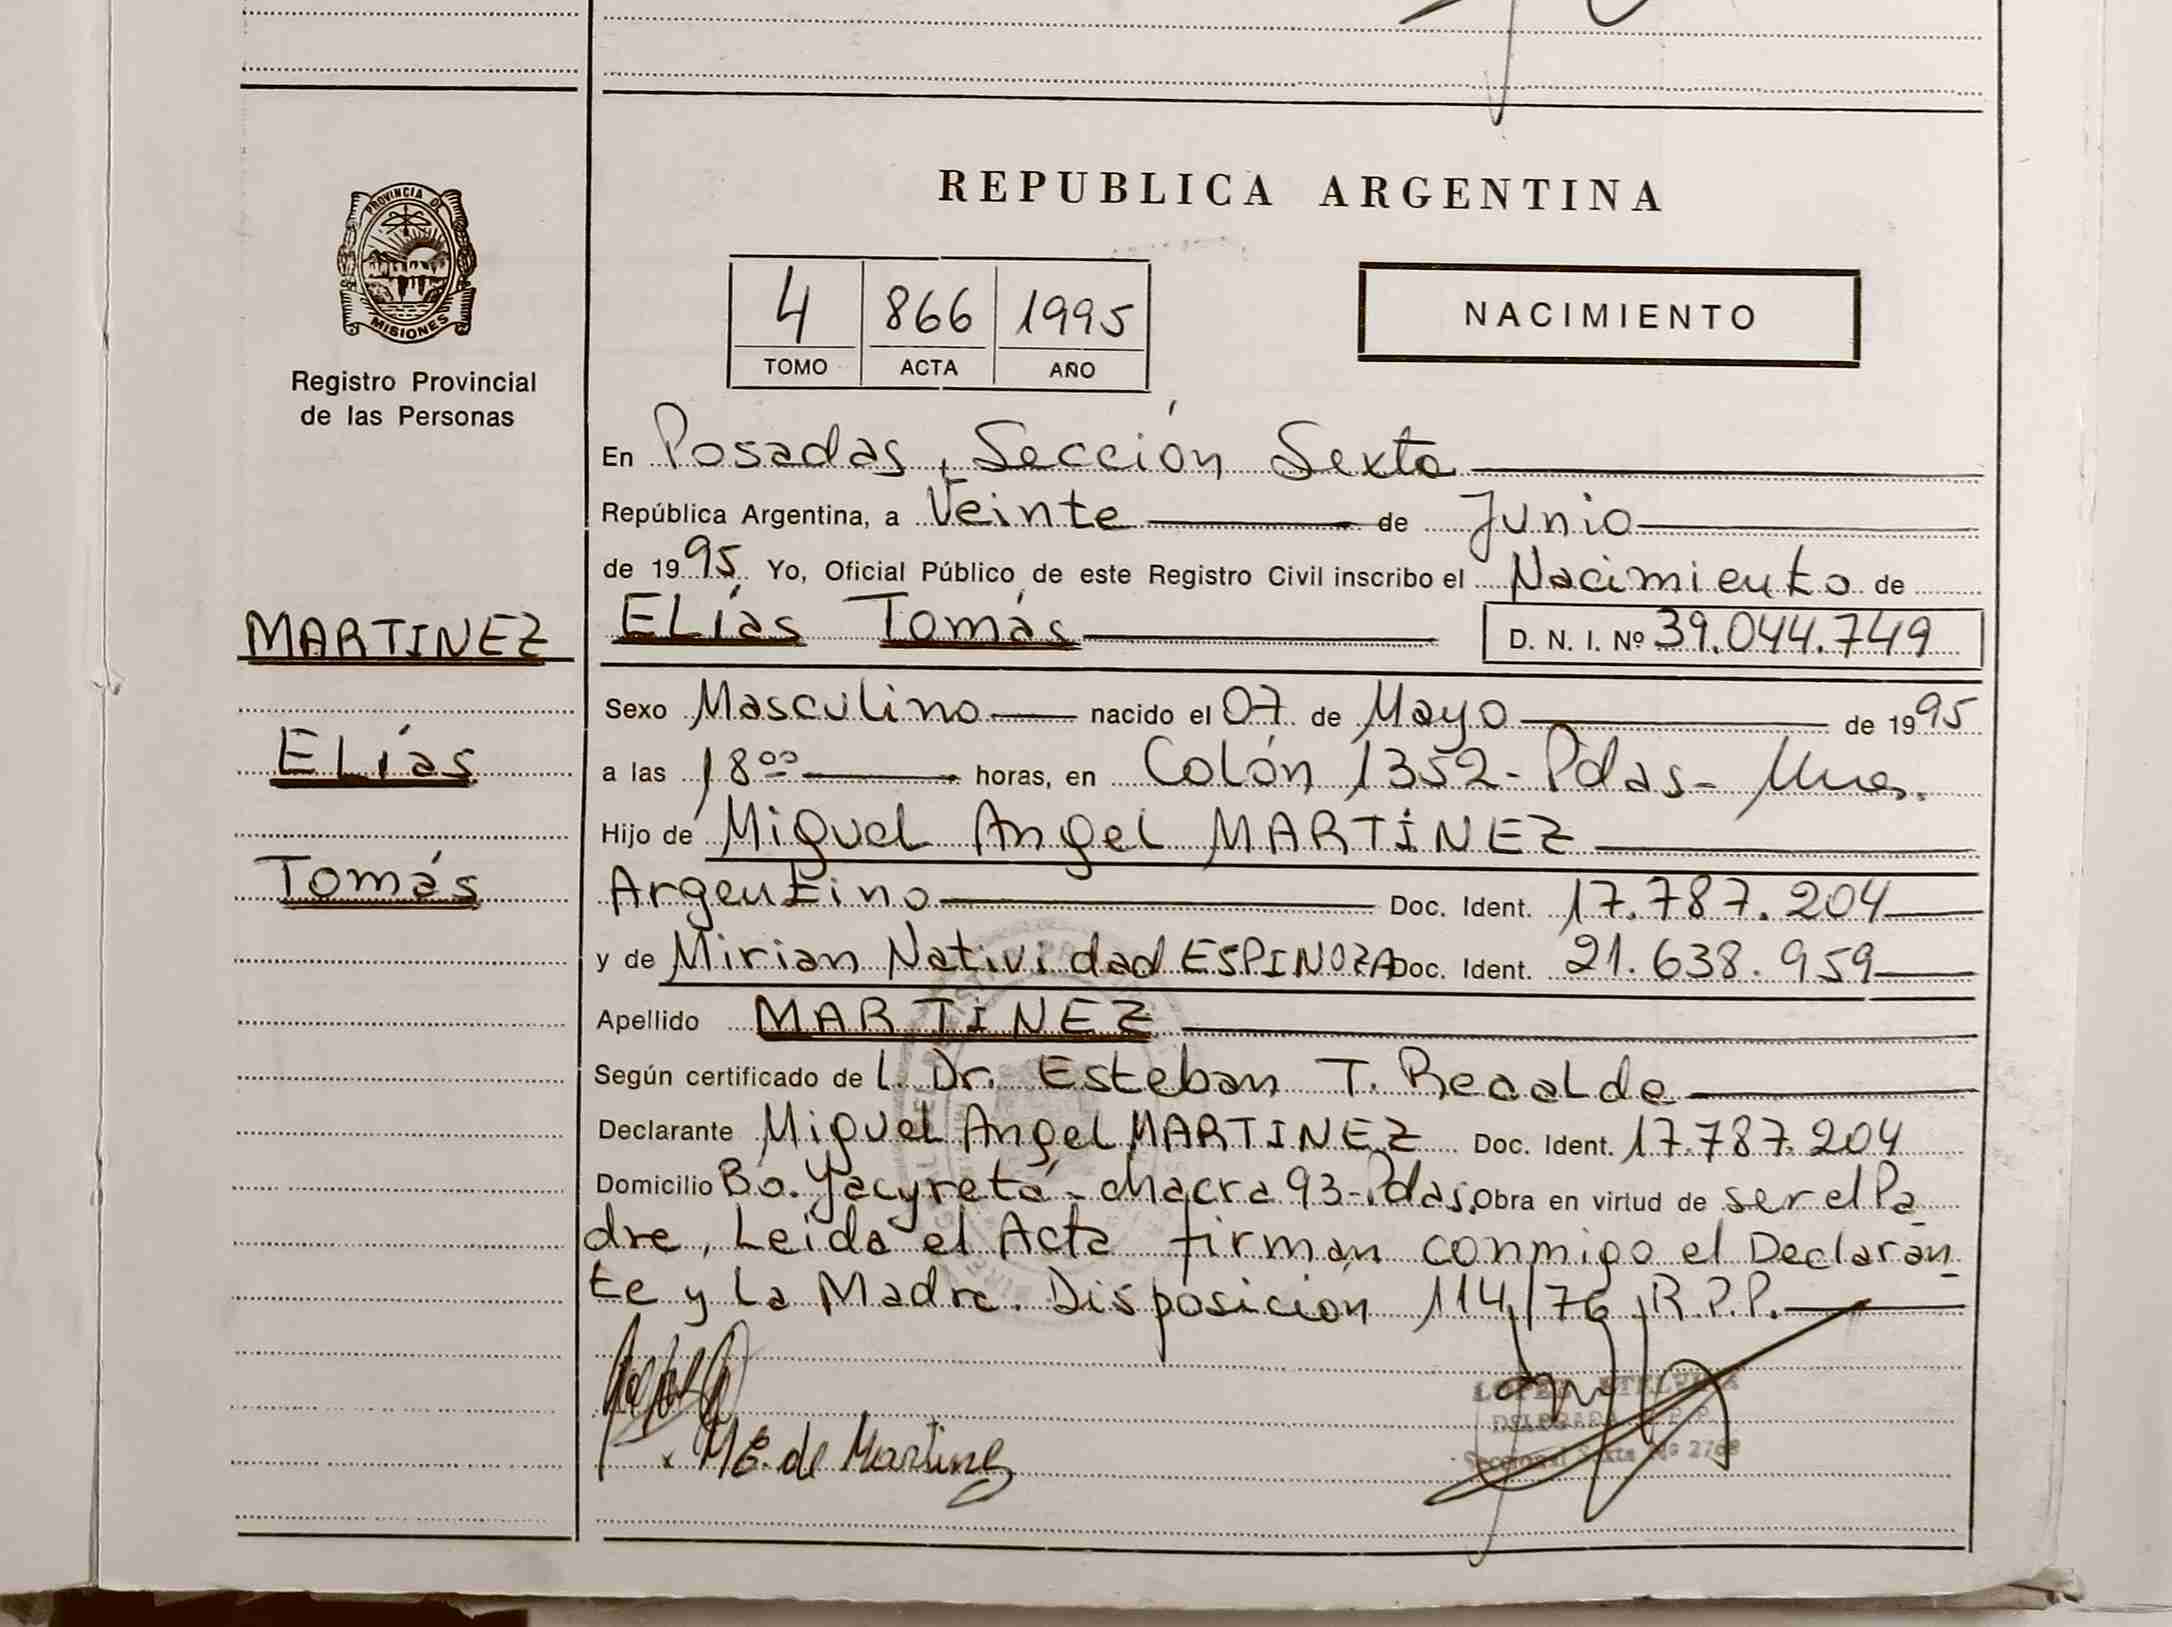 REPUBLICA ARGENTINA
PROVINCIA DE
MISIONES
Registro Provincial
de las Personas
4 866 1995
TOMO ACTA AÑO
NACIMIENTO
En Posadas, Sección Sexta
República Argentina, a Veinte de Junio
de 1995 Yo, Oficial Público de este Registro Civil inscribo el Nacimiento de
MARTINEZ
Elías
Tomás
Elías Tomás D. N. I. Nº 39.044.749
Sexo Masculino nacido el 07 de Mayo de 1995
a las 18 00 horas, en Colón 1352 - Pdas - Mnes.
Hijo de Miguel Angel MARTINEZ
Argentino Doc. Ident. 17.787.204
y de Mirian Natividad ESPINOZA Doc. Ident. 21.638.959
Apellido MARTINEZ
Según certificado de l Dr. Esteban T. Recalde
Declarante Miguel Angel MARTINEZ Doc. Ident. 17.787.204
Domicilio Bo. Yacyretá - chacra 93 - Pdas. Obra en virtud de ser el Pa
dre, Leida el Acta firman conmigo el Declaran
te y la Madre. Disposición 114/76 R.P.P.
M E. de Martinez
Seccional Sexta Nº